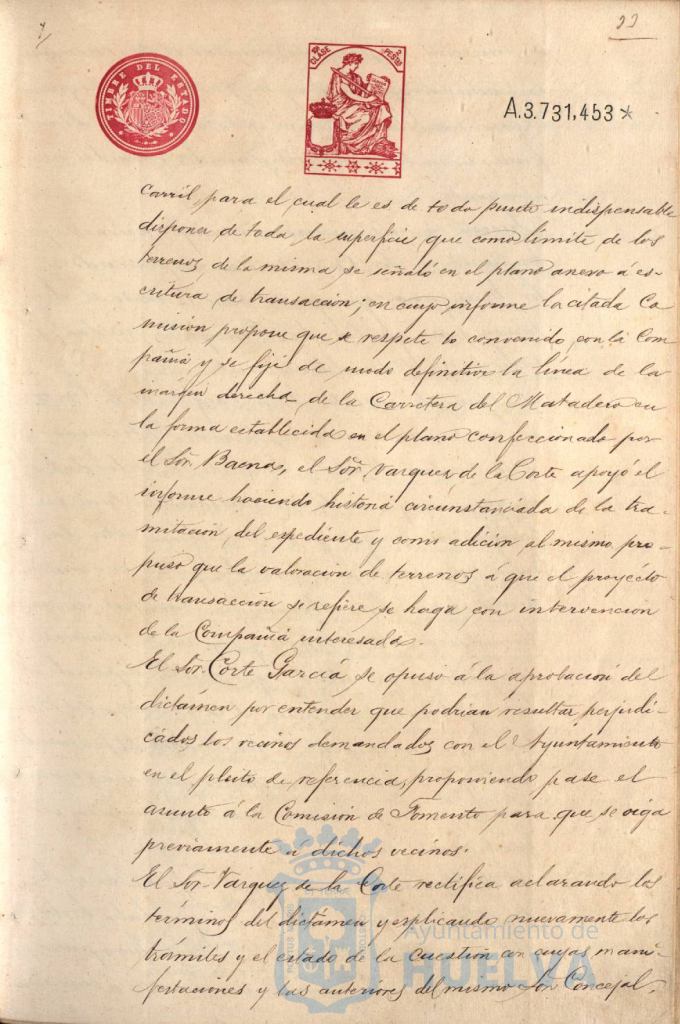 22
TIMBRE DEL ESTADO
10ª CLASE
2 PESETAS
A.3.731,453*
carril, para el cual le es de todo punto indispensable
disponer de toda la superficie que como límite de los
terrenos de la misma se señaló en el plano anexo á es-
critura de transacción; en cuyo informe la citada Co
misión propone que se respete lo convenido con la Com
pañia y se fije de modo definitivo la línea de la
márgen derecha de la Carretera del Matadero en
la forma establecida en el plano confeccionado por
el Sor. Baena, el Sor. Vazquez de la Corte apoyó el
informe haciendo historia circunstanciada de la tra-
mitación del espediente y como adición al mismo pro-
puso que la valoración de terrenos á que el proyecto
de transacción se refiere se haga con intervención
de la Compañia interesada.
El Sor. Corte García se opuso á la aprobación del
dictámen por entender que podrian resultar perjudi-
cados los vecinos demandados con el Ayuntamiento
en el pleito de referencia, proponiendo pase el
asunto á la Comisión de Fomento para que se oiga
previamente á dichos vecinos.
El Sor. Vazquez de la Corte rectifica aclarando los
términos del dictámen y esplicando nuevamente los
trámites y el estado de la cuestión con cuyas mani-
festaciones y las anteriores del mismo Sor. Concejal,
Ayuntamiento de
HUELVA